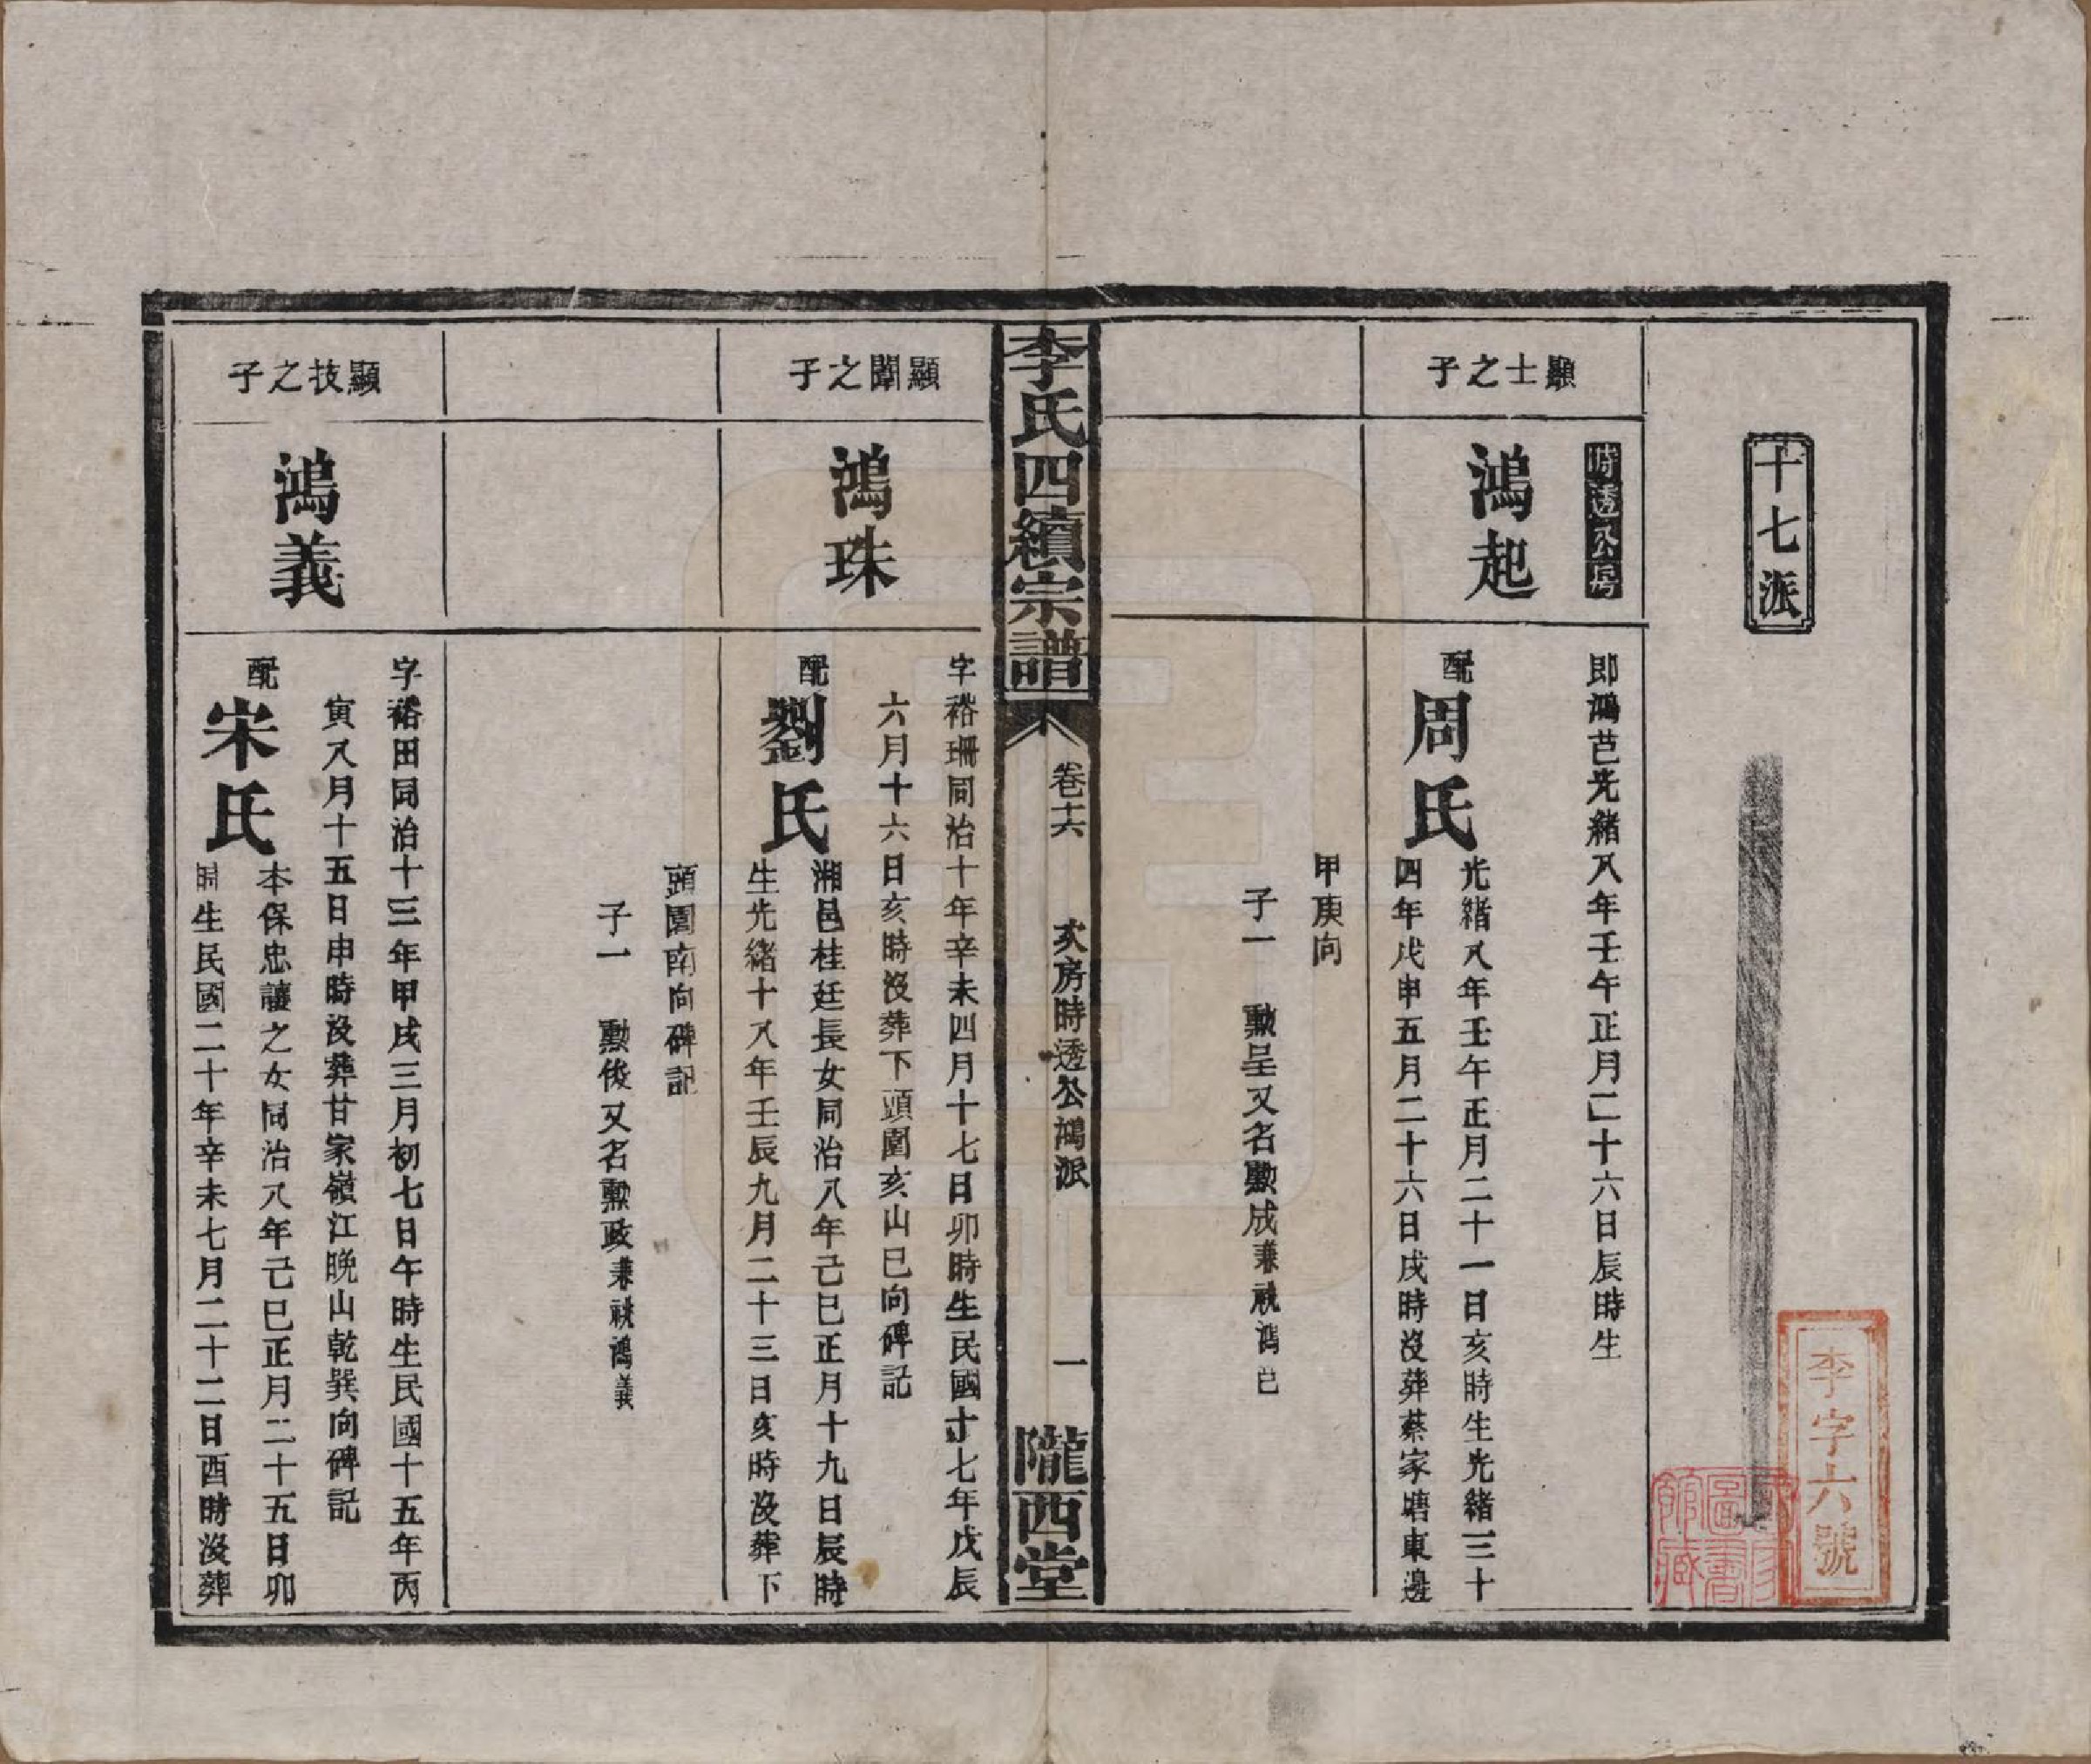 十七派
李字六號
時透公房
顯士之子
鴻起
即鴻芑光緒八年壬午正月二十六日辰時生
配
周氏
光緒八年壬午正月二十一日亥時生光緒三十
四年戊申五月二十六日戌時沒葬蔡家塘東邊
甲庚向
子一　勳呈又名勳成兼祧鴻芑
李氏四續宗譜
卷十六
次房時透公鴻派
一
隴西堂
顯闈之子
鴻珠
字裕珊同治十年辛未四月十七日卯時生民國十七年戊辰
六月十六日亥時沒葬下頭園亥山巳向碑記
配
劉氏
湘邑桂廷長女同治八年己巳正月十九日辰時
生光緒十八年壬辰九月二十三日亥時沒葬下
頭園南向碑記
子一　勳俊又名勳政兼祧鴻義
顯技之子
鴻義
字裕田同治十三年甲戌三月初七日午時生民國十五年丙
寅八月十五日申時沒葬甘家嶺江晚山乾巽向碑記
配
宋氏
本保忠讓之女同治八年己巳正月二十五日卯
時生民國二十年辛未七月二十二日酉時沒葬